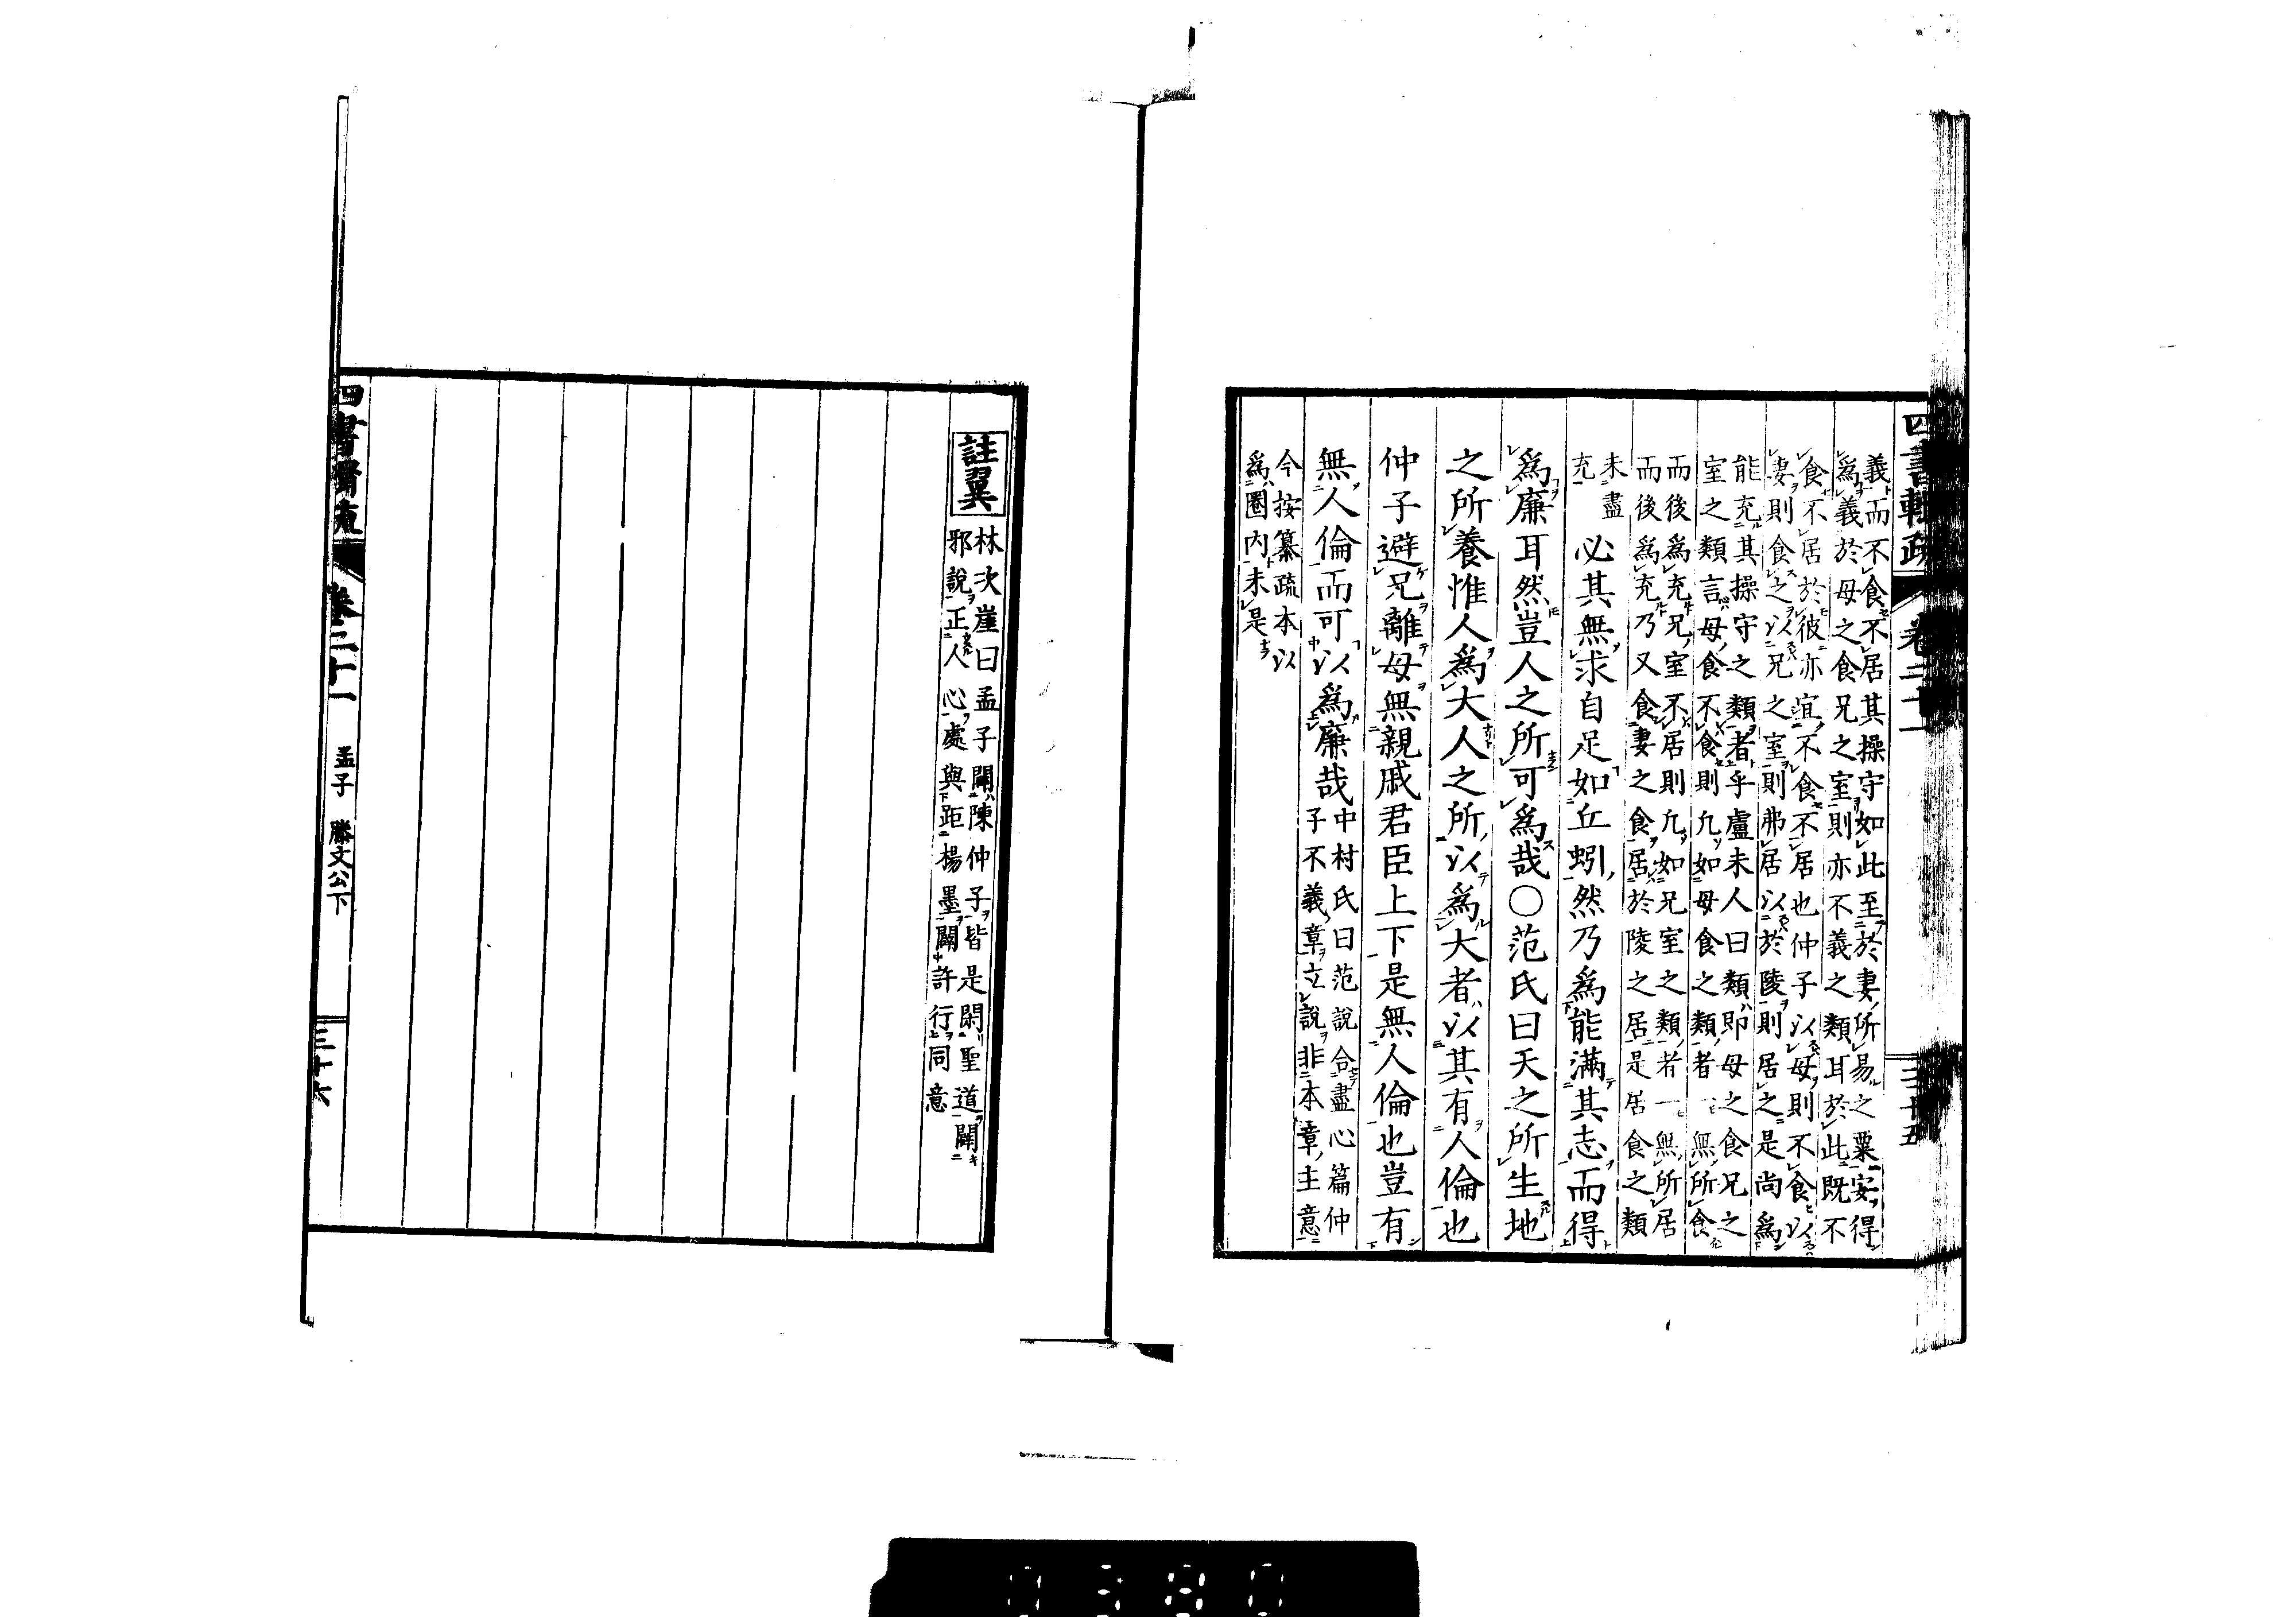 四書輯疏 卷二十一 三十五
義而不食不居其操守如此至於妻所易之粟安得
爲義於母之食兄之室則亦不義之類耳於此既不
食不居於彼亦宜不食不居也仲子以母則不食以
妻則食之以兄之室則弗居以於陵則居之是尚爲
能充其操守之類者乎盧未人曰類即母之食兄之
室之類言母食不食則凢如母食之類者一無所食
而後爲充兄室不居則凢如兄室之類者一無所居
而後爲充乃又食妻之食居於陵之居是居食之類
未盡
充
必其無求自足如丘蚓然乃爲能滿其志而得
爲廉耳然豈人之所可爲哉○范氏曰天之所生地
之所養惟人爲大人之所以爲大者以其有人倫也
仲子避兄離母無親戚君臣上下是無人倫也豈有
無人倫而可以爲廉哉
中村氏曰范說合盡心篇仲
子不義章立說非本章主意
今按纂疏本以
爲圈內未是
註翼
林次崖曰孟子闢陳仲子皆是閑聖道闢
邪說正人心處與距楊墨闢許行同意
四書輯疏 卷二十一 孟子 滕文公下 三十六